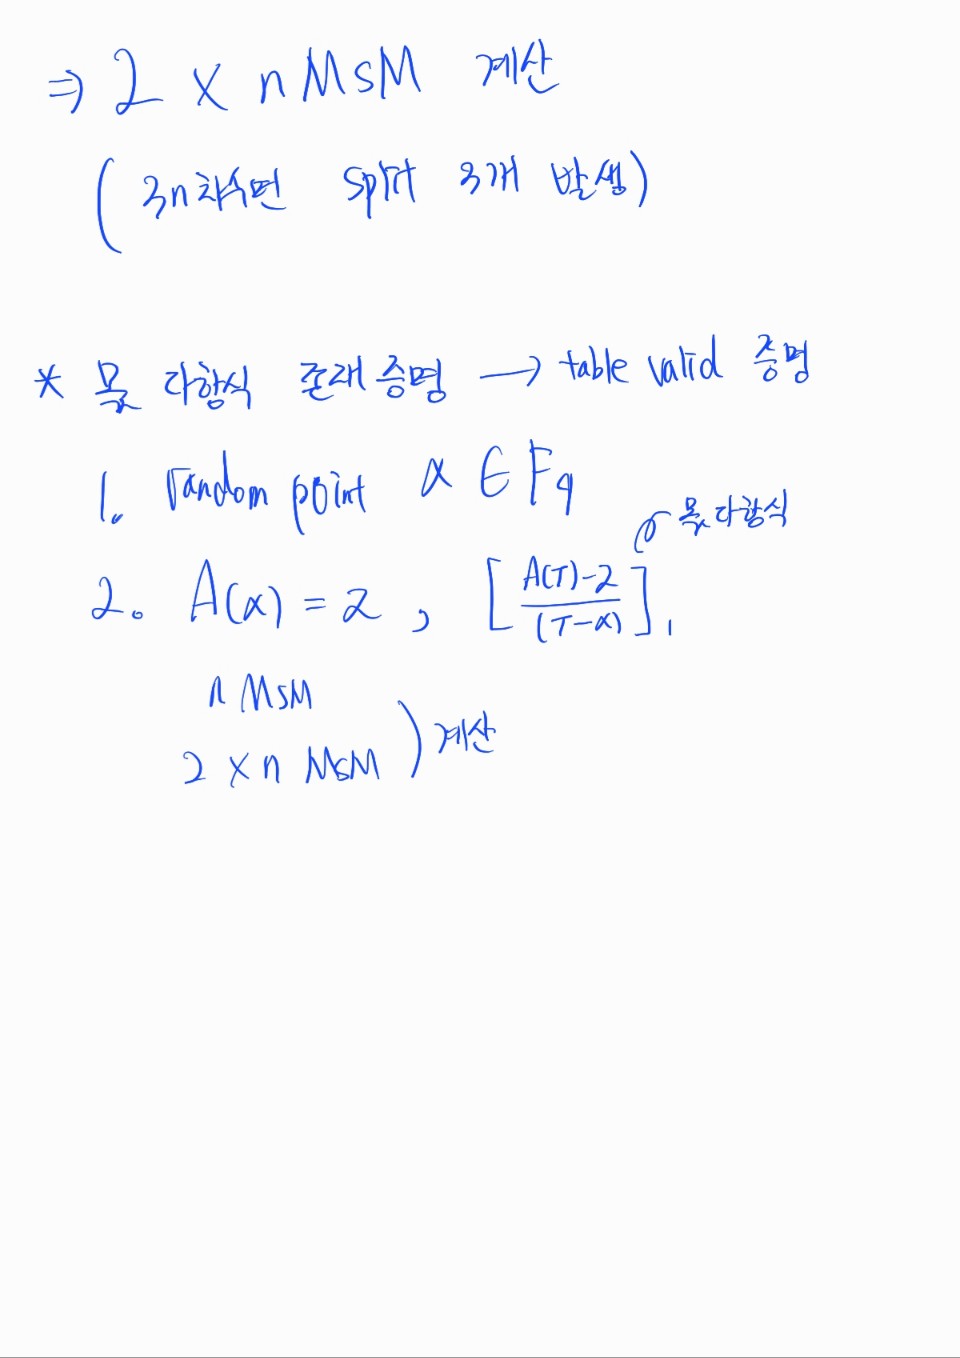 ⇒ 2 × n MSM 계산
(3n차수면 split 3개 발생)
* 몫 다항식 존재 증명 → table valid 증명
1. random point α ∈ Fq
몫 다항식
2. A(α) = z , [A(T)-z / (T-α)]₁
n MSM
2 × n MSM ) 계산